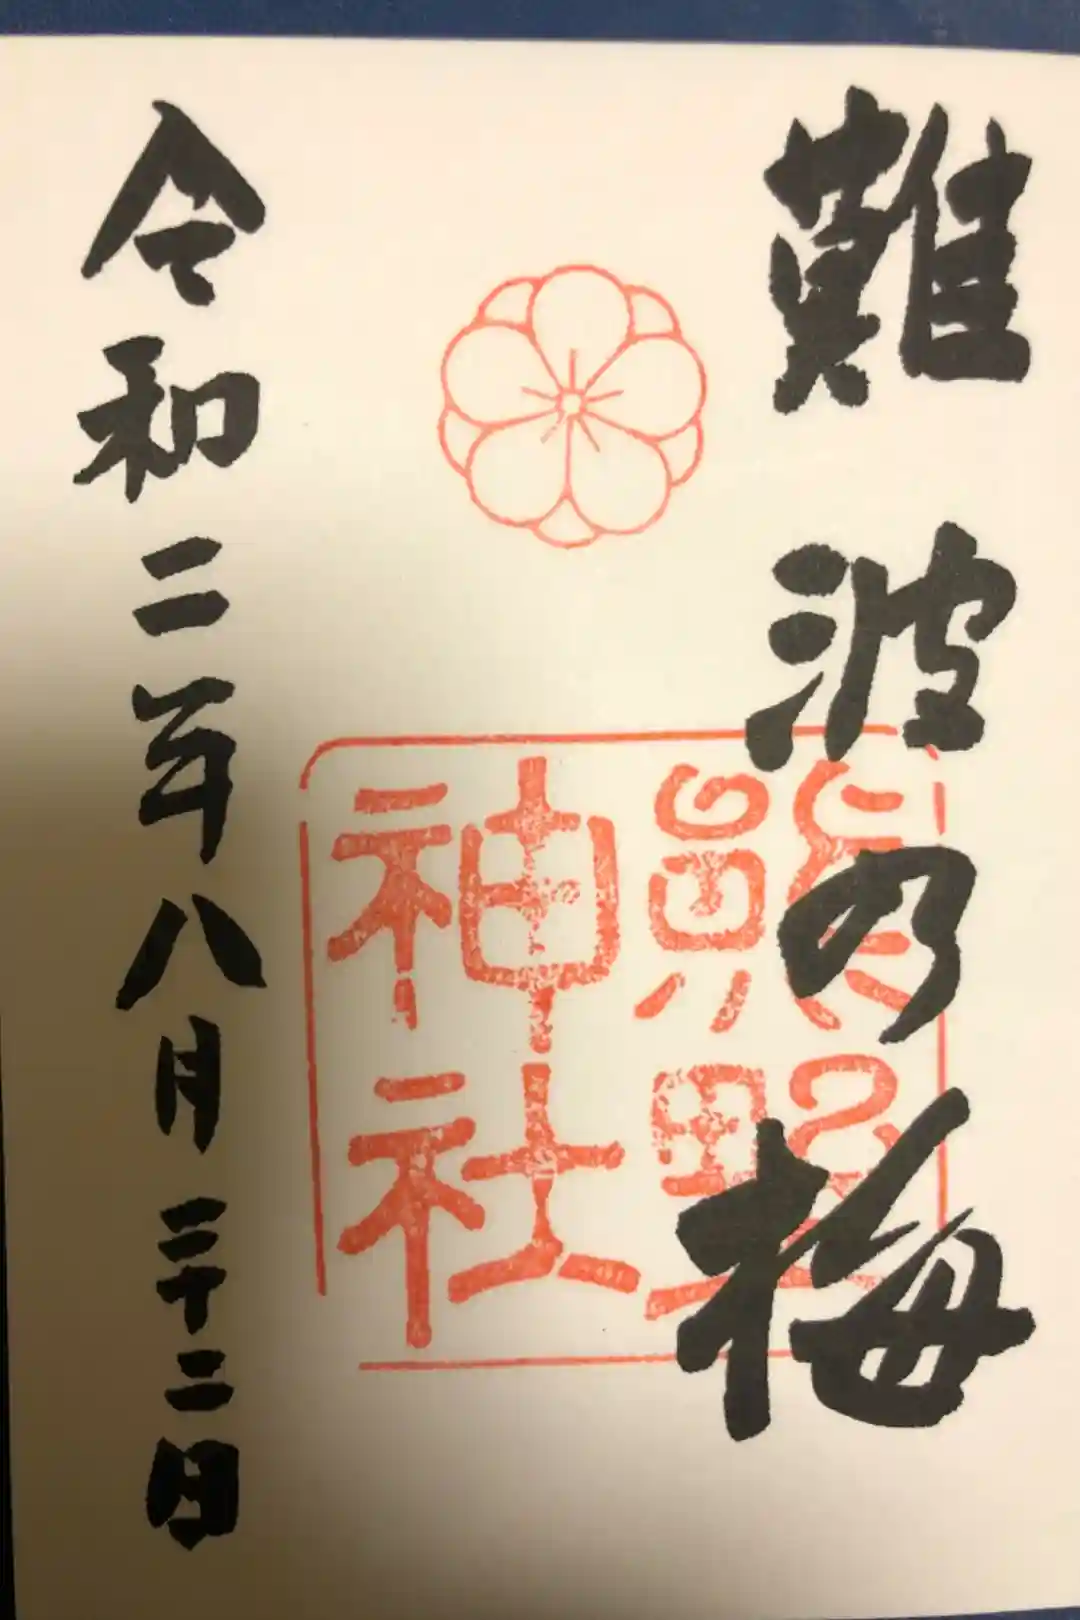 難波乃梅
熊野
神社
令和二年八月二十二日